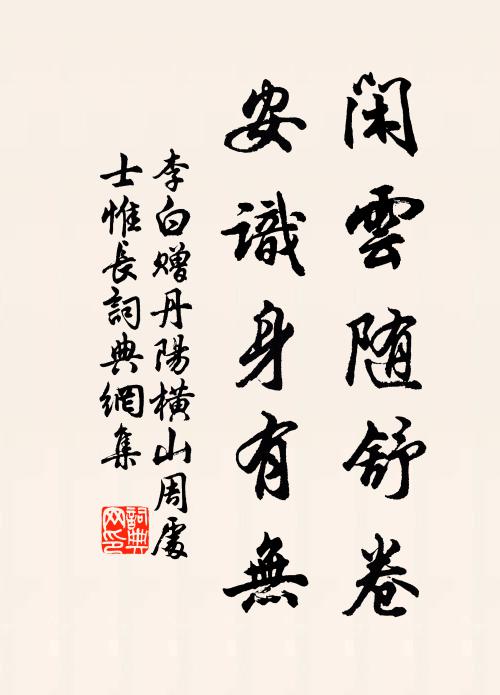 閑雲随舒卷
安識身有無
李白赠丹陽橫山周處
士惟長詞典網集
詞典
网印